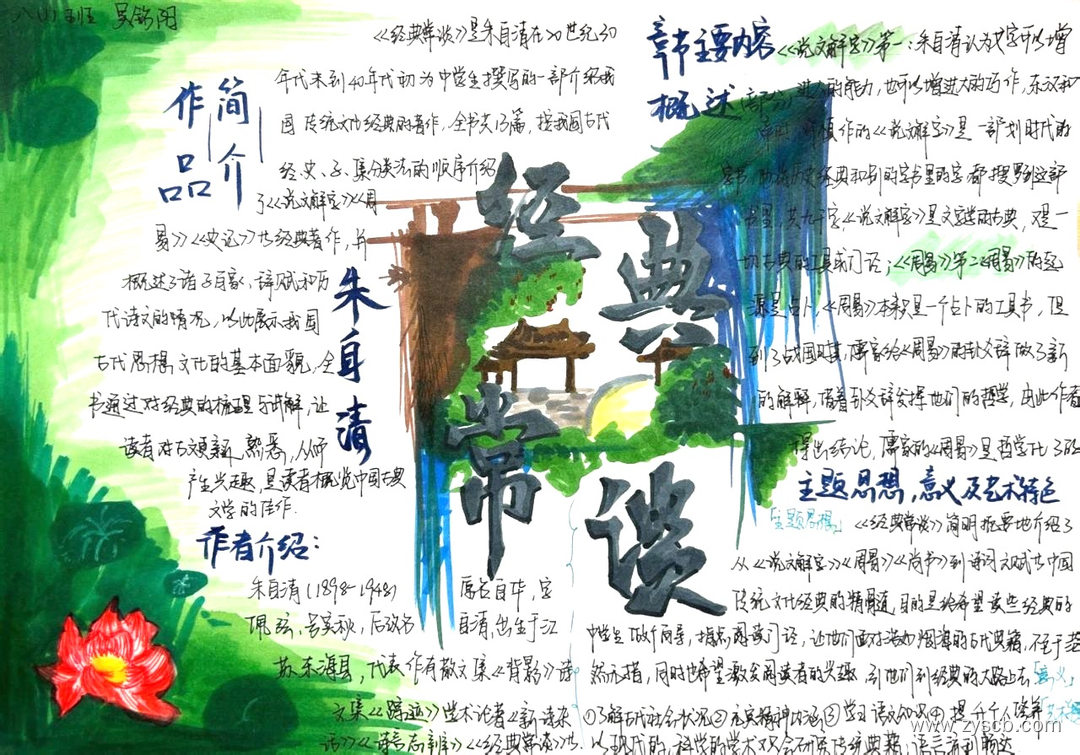 八(1)班 吴铭阳
作品简介
《经典常谈》是朱自清在20世纪30
年代末到40年代初为中学生撰写的一部介绍我
国传统文化经典的著作,全书共13篇,按我国古代
经、史、子、集分类法的顺序介绍
了《说文解字》《周
易》《史记》等经典著作,并
概述了诸子百家、辞赋和历
代诗文的情况,以此展示我国
古代思想文化的基本面貌,全
书通过对经典的梳理与讲解,让
读者对古文更新、熟悉,从而
产生兴趣,是读者概览中国古典
文学的佳作.
朱自清
作者介绍:
朱自清(1898-1948) 原名自华,
佩弦,号实秋,后改名自清,出生于江
苏东海县,代表作有散文集《背影》诗
文集《踪迹》学术论著《新诗杂
话》《诗言志辨》《经典常谈》等.
经典常谈
章书主要内容
概述(部分)
《说文解字》第一:朱自清认为文字可以增
进人的能力,也可以增进人的巧作,东汉和
作的《说文解字》是一部划时代的
字书,经典和别的字书里的字都搜罗到这部
书里,共九千字,《说文解字》是文字学的古典,又是一
切古典的工具或门径;《周易》第二《周易》的起
源是占卜,《周易》本来是一个占卜的工具书,但
到了战国末期,儒家给《周易》的卦爻辞做了新
的解释,借着卦爻辞发挥他们的哲学,由此作者
得出结论,儒家的《周易》是哲学化了的
主题思想,意义及艺术特色
「主题思想」《经典常谈》简明扼要地介绍了
从《说文解字》《周易》《尚书》到诗词文赋等中国
传统文化经典的精髓,目的是给希望读些经典的
中学生做个向导,指点阅读门径,让他们面对浩如烟海的古代典籍,不至于茫
然无措,同时也希望激会阅读者的兴趣,引他们到经典的大路上去「意义」
①了解古代社会状况②充实精神内涵③学习语文知识④提升个人修养
以现代的,科学的学术观念研究传统典籍,语言流
www.zyscb.com